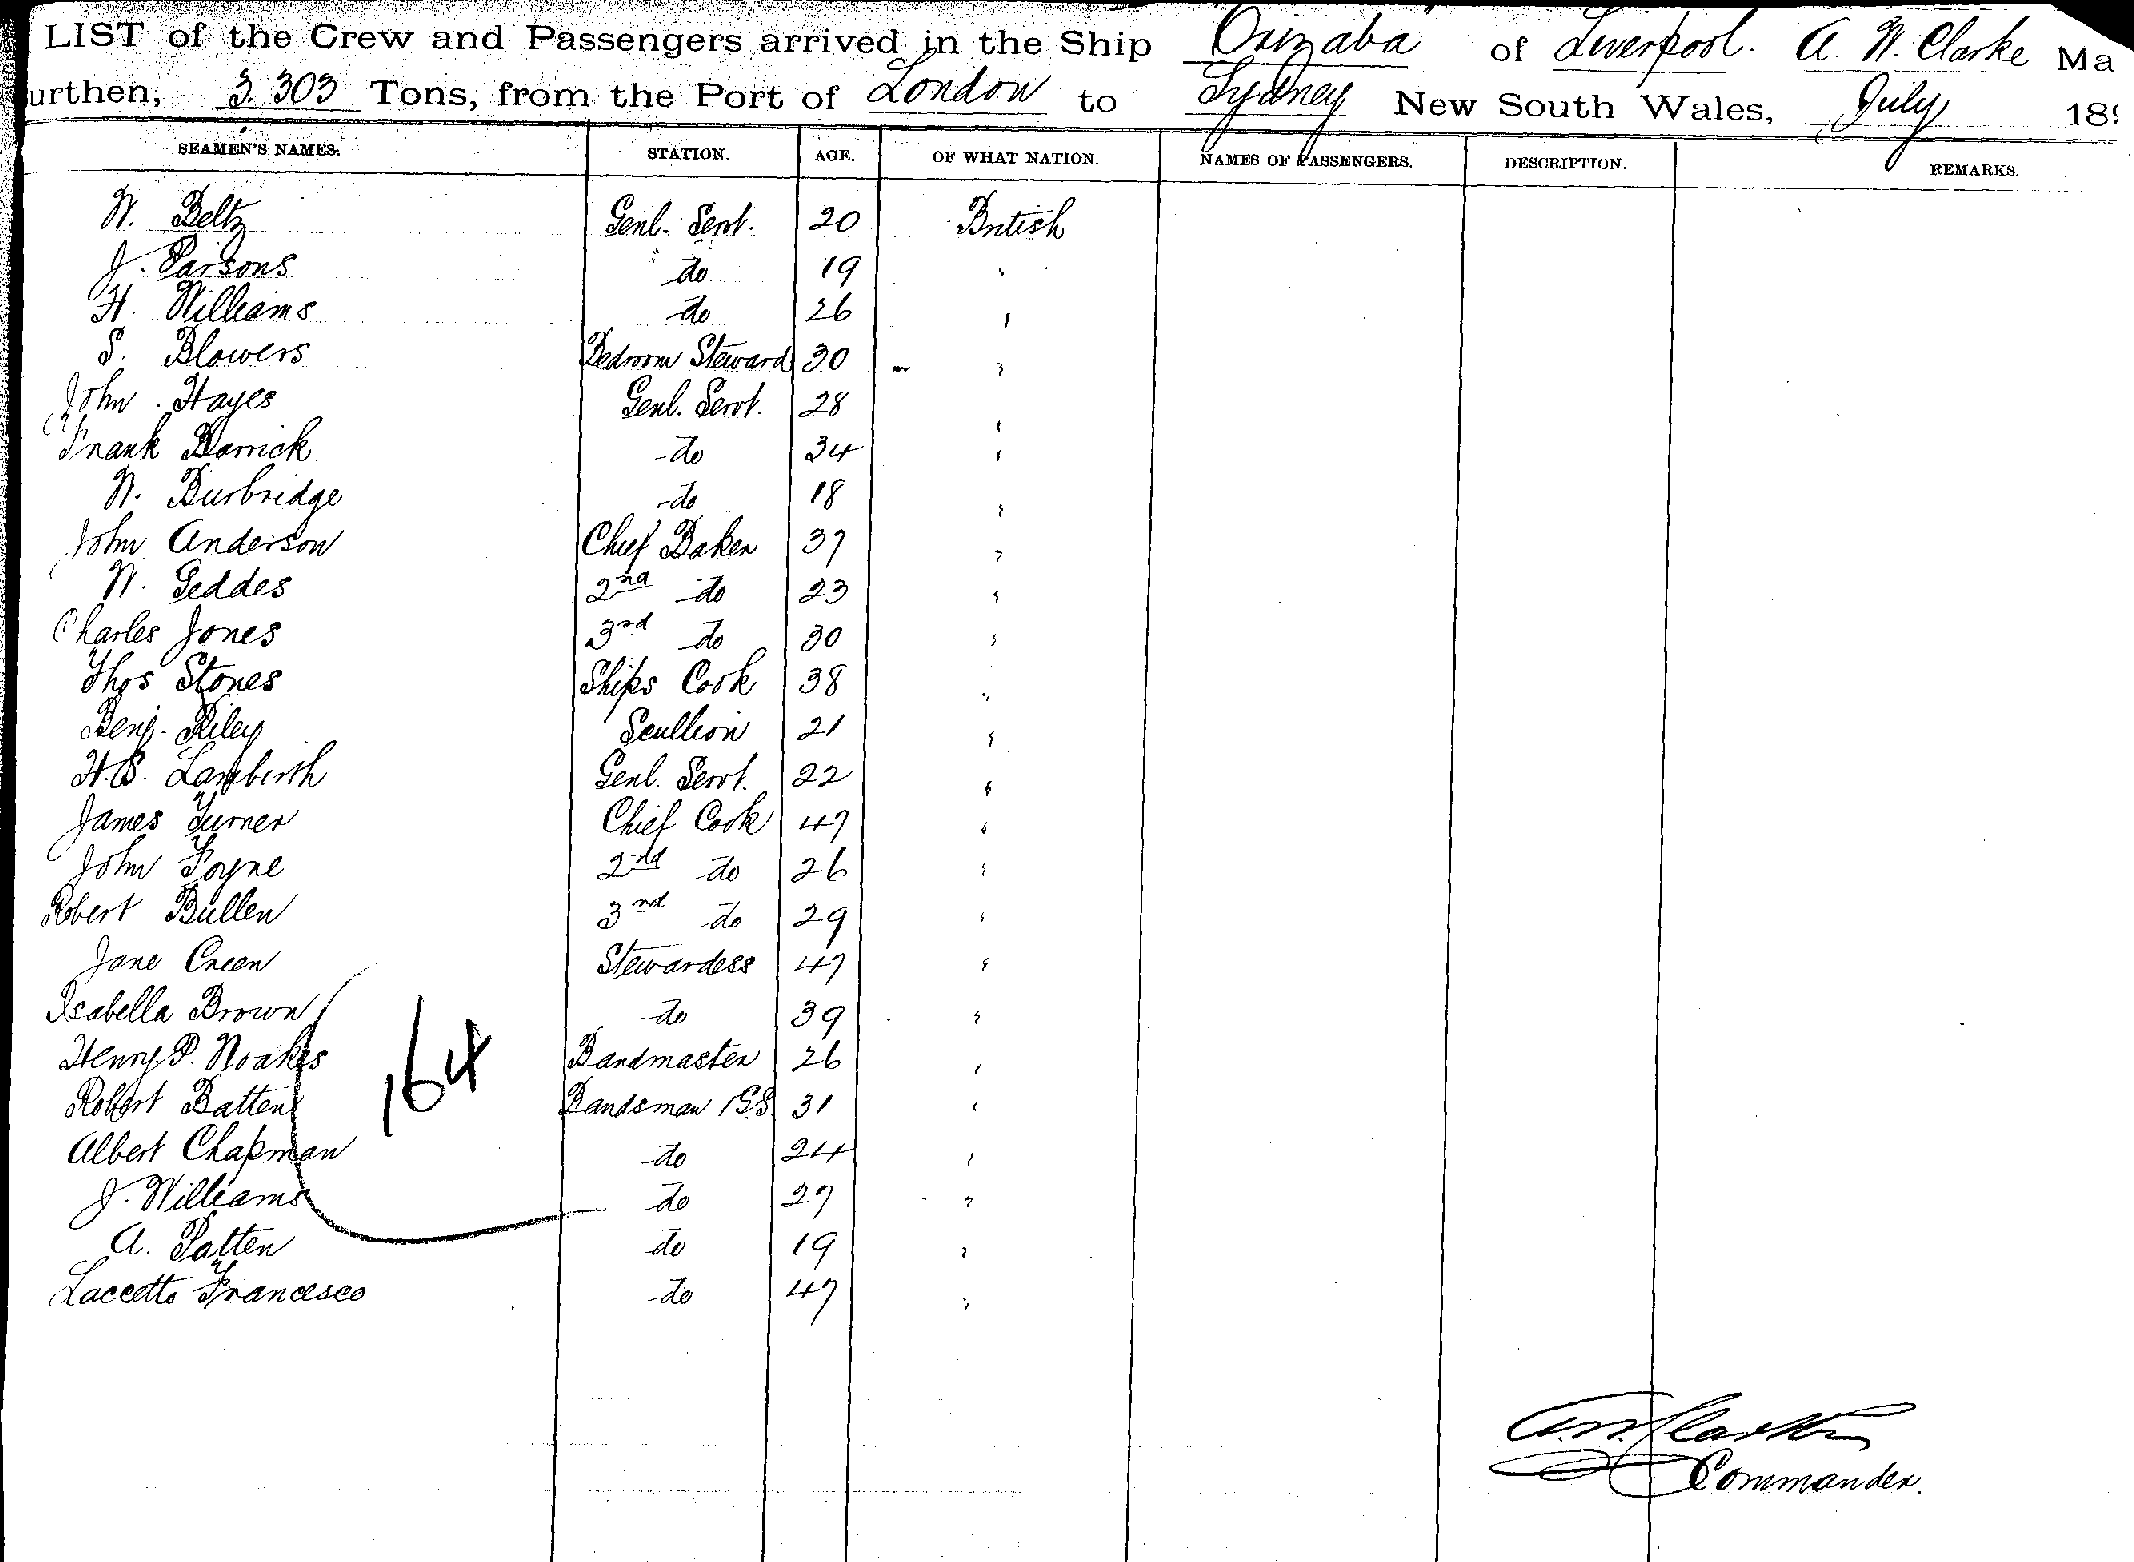 LIST of the Crew and Passengers arrived in the Ship "Orizaba" of Liverpool. A. W. Clarke Ma
urthen, 3.303 Tons, from the Port of London to Sydney New South Wales, July 189
SEAMEN'S NAMES. STATION. AGE. OF WHAT NATION. NAMES OF PASSENGERS. DESCRIPTION. REMARKS.
W. Beltz Genl. Servt. 20 British
J. Parsons do 19 "
H. Williams do 26 "
S. Blowers Bedroom Steward 30 "
John Hayes Genl. Servt. 28 "
Frank Borrick do 34 "
W. Burbridge do 18 "
John Anderson Chief Baker 37 "
W. Geddes 2nd do 23 "
Charles Jones 3rd do 30 "
Thos Stones Ships Cook 38 "
Benj. Riley Scullion 21 "
H.S. Lamberth Genl. Servt. 22 "
James Turner Chief Cook 47 "
John Foyne 2nd do 26 "
Robert Bullen 3rd do 29 "
Jane Creen Stewardess 47 "
Isabella Brown do 39 "
Henry P. Noakes Bandmaster 26 "
Robert Batten Bandsman /GS 31 "
Albert Chapman do 24 "
J. Williams do 27 "
A. Patten do 19 "
Laccetto Francesco do 47 "
164
A.W. Clarke
Commander.